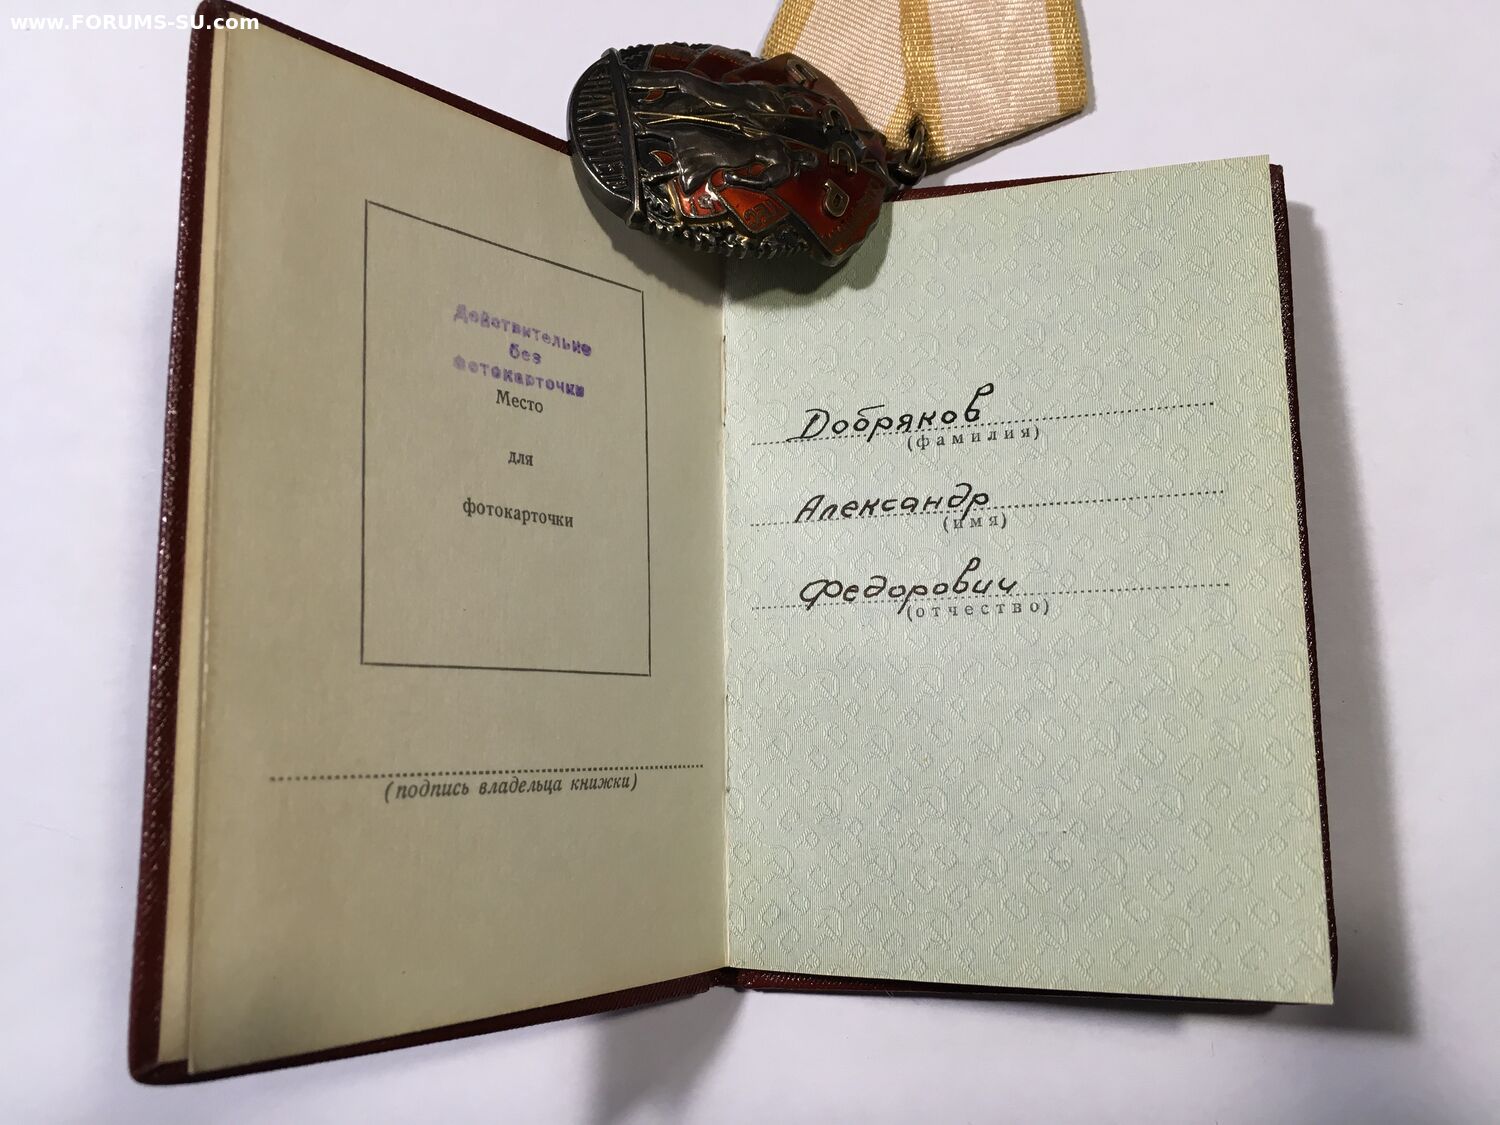 www.FORUMS-SU.com
СССР
Действительно
без
фотокарточки
Место
для
фотокарточки
(подпись владельца книжки)
Добряков
(фамилия)
Александр
(имя)
Федорович
(отчество)